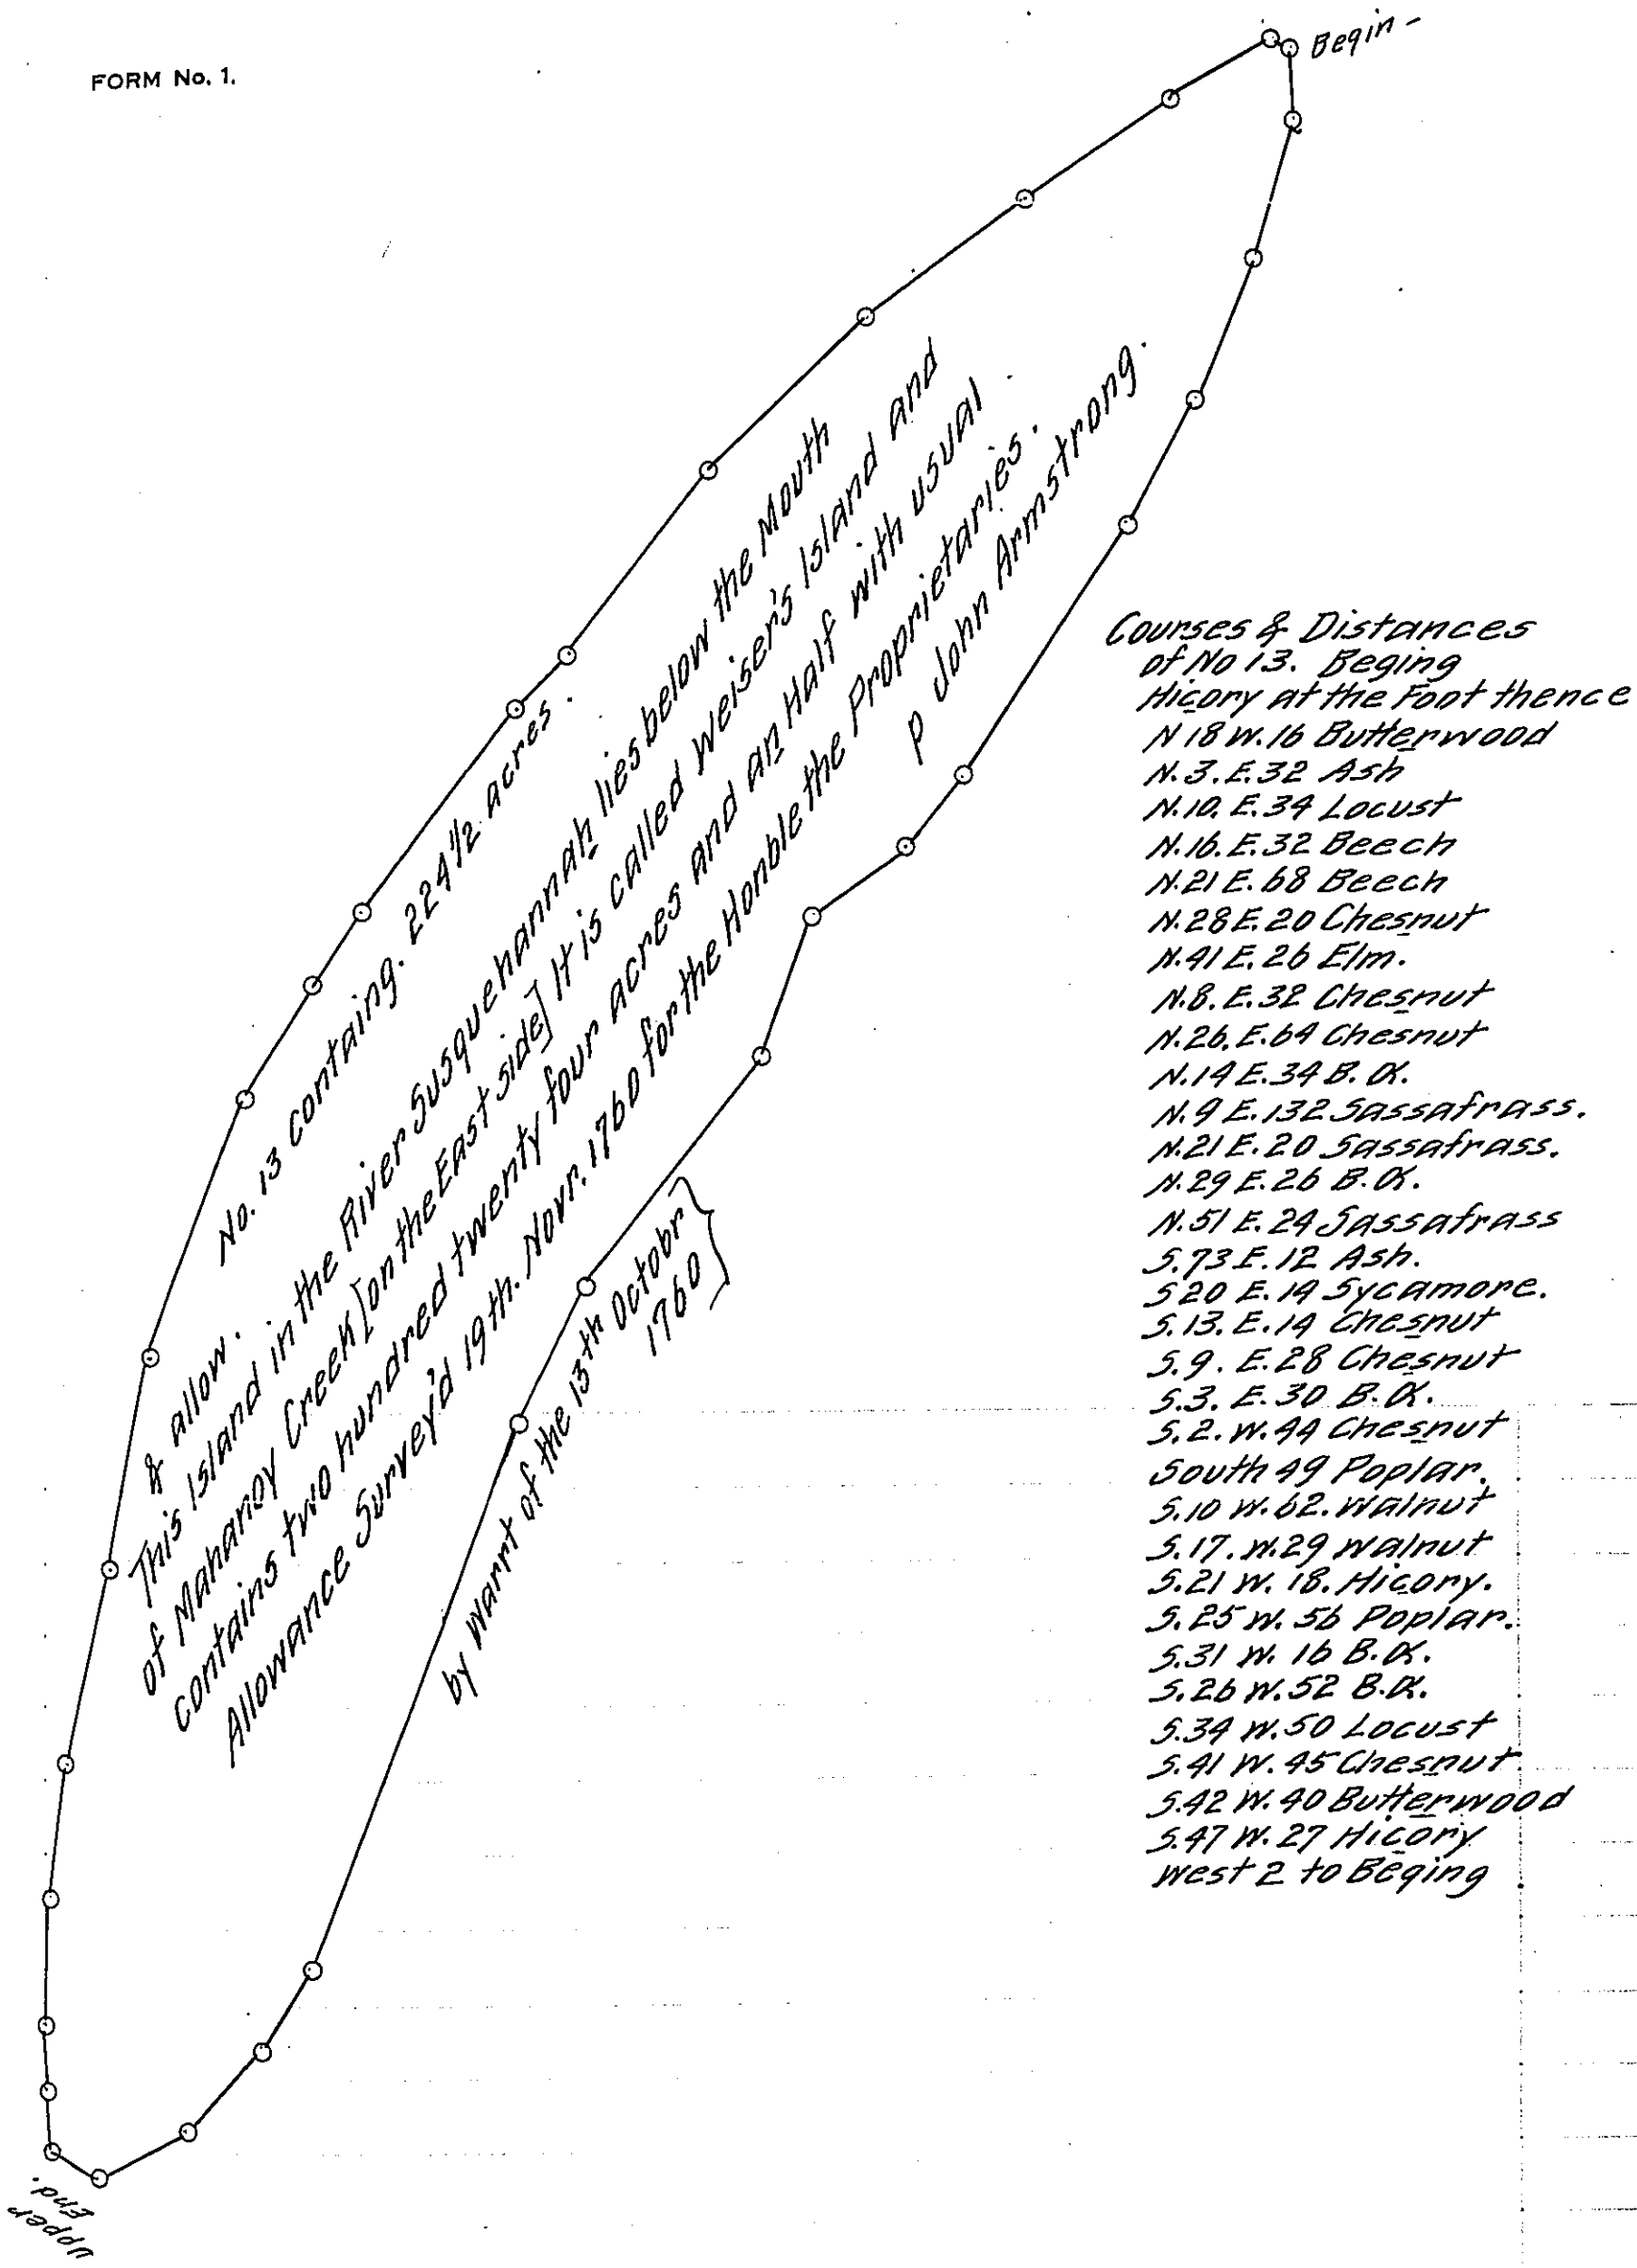 FORM No. 1.
Begin-
No. 13 containg. 224 1/2 acres.
& allow.
This Island in the River Susquehannah lies below the Mouth
of Mahanoy Creek [on the East side] It is called Weiser's Island and
contains two hundred twenty four acres and an Half with usual
Allowance Survey'd 19th. Novr. 1760 for the Honble the Proprietaries.
p John Armstrong.
by Warrt of the 13th Octobr
1760
Courses & Distances
of No 13. Beging
Hicory at the Foot thence
N 18 W. 16 Butterwood
N. 3. E. 32 Ash
N. 10. E. 34 Locust
N. 16. E. 32 Beech
N. 21 E. 68 Beech
N. 28 E. 20 Chesnut
N. 41 E. 26 Elm.
N. 8. E. 32 Chesnut
N. 26. E. 64 Chesnut
N. 14 E. 34 B. O.
N. 9 E. 132 Sassafrass.
N. 21 E. 20 Sassafrass.
N. 29 E. 26 B. O.
N. 51 E. 24 Sassafrass
S. 73 E. 12 Ash.
S 20 E. 14 Sycamore.
S. 13. E. 14 Chesnut
S. 9. E. 28 Chesnut
S. 3. E. 30 B. O.
S. 2. W. 44 Chesnut
South 49 Poplar.
S. 10 W. 62. Walnut
S. 17. W. 29 Walnut
S. 21 W. 18. Hicory.
S. 25 W. 56 Poplar.
S. 31 W. 16 B. O.
S. 26 W. 52 B. O.
S. 34 W. 50 Locust
S. 41 W. 45 Chesnut
S. 42 W. 40 Butterwood
S. 47 W. 27 Hicory
West 2 to Beging
Upper
End.